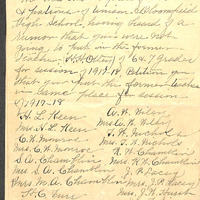 & Patrons of Union & Bloomfield
High School, having heard of a
rumor that you were not
going to put in the former
teacher, of 6 & 7 Grades
for session of 1918-18. Petition you
that you put the former teacher
in same place for session
of 1917-18
H. L. Keen
Mrs. H. L. Keen
C. W. Monroe
Mrs. C. W. Monroe
S. A. Champlin
Mrs S. A. Champlin
Mrs M. A. Champlin
H. C.
A. W.
Mrs. A. W.
T. H. Nichols
Mrs. T. H. Nichols
R. H. Champlin
Mrs. R. H. Champlin
J. P. Lacey
Mrs. J. P. Lacey
Mrs. J. W.